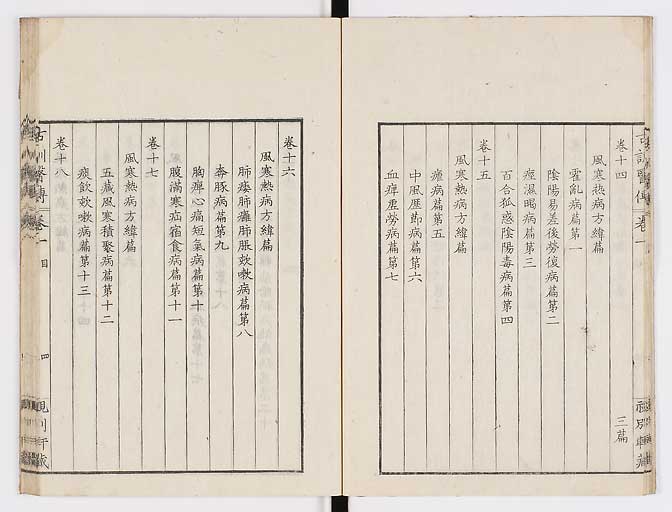 卷十四
風寒熱病方緯篇
霍亂病篇第一
陰陽易差後勞復病篇第二
痙濕暍病篇第三
百合狐惑陰陽毒病篇第四
卷十五
風寒熱病方緯篇
瘧病篇第五
中風歷節病篇第六
血痺虛勞病篇第七
三篇
卷十六
風寒熱病方緯篇
肺痿肺癰肺脹欬嗽病篇第八
奔豚病篇第九
胸痺心痛短氣病篇第十
腹滿寒疝宿食病篇第十一
卷十七
風寒熱病方緯篇
五藏風寒積聚病篇第十二
痰飲欬嗽病篇第十三
卷十八
古訓醫傳
卷一
目
四